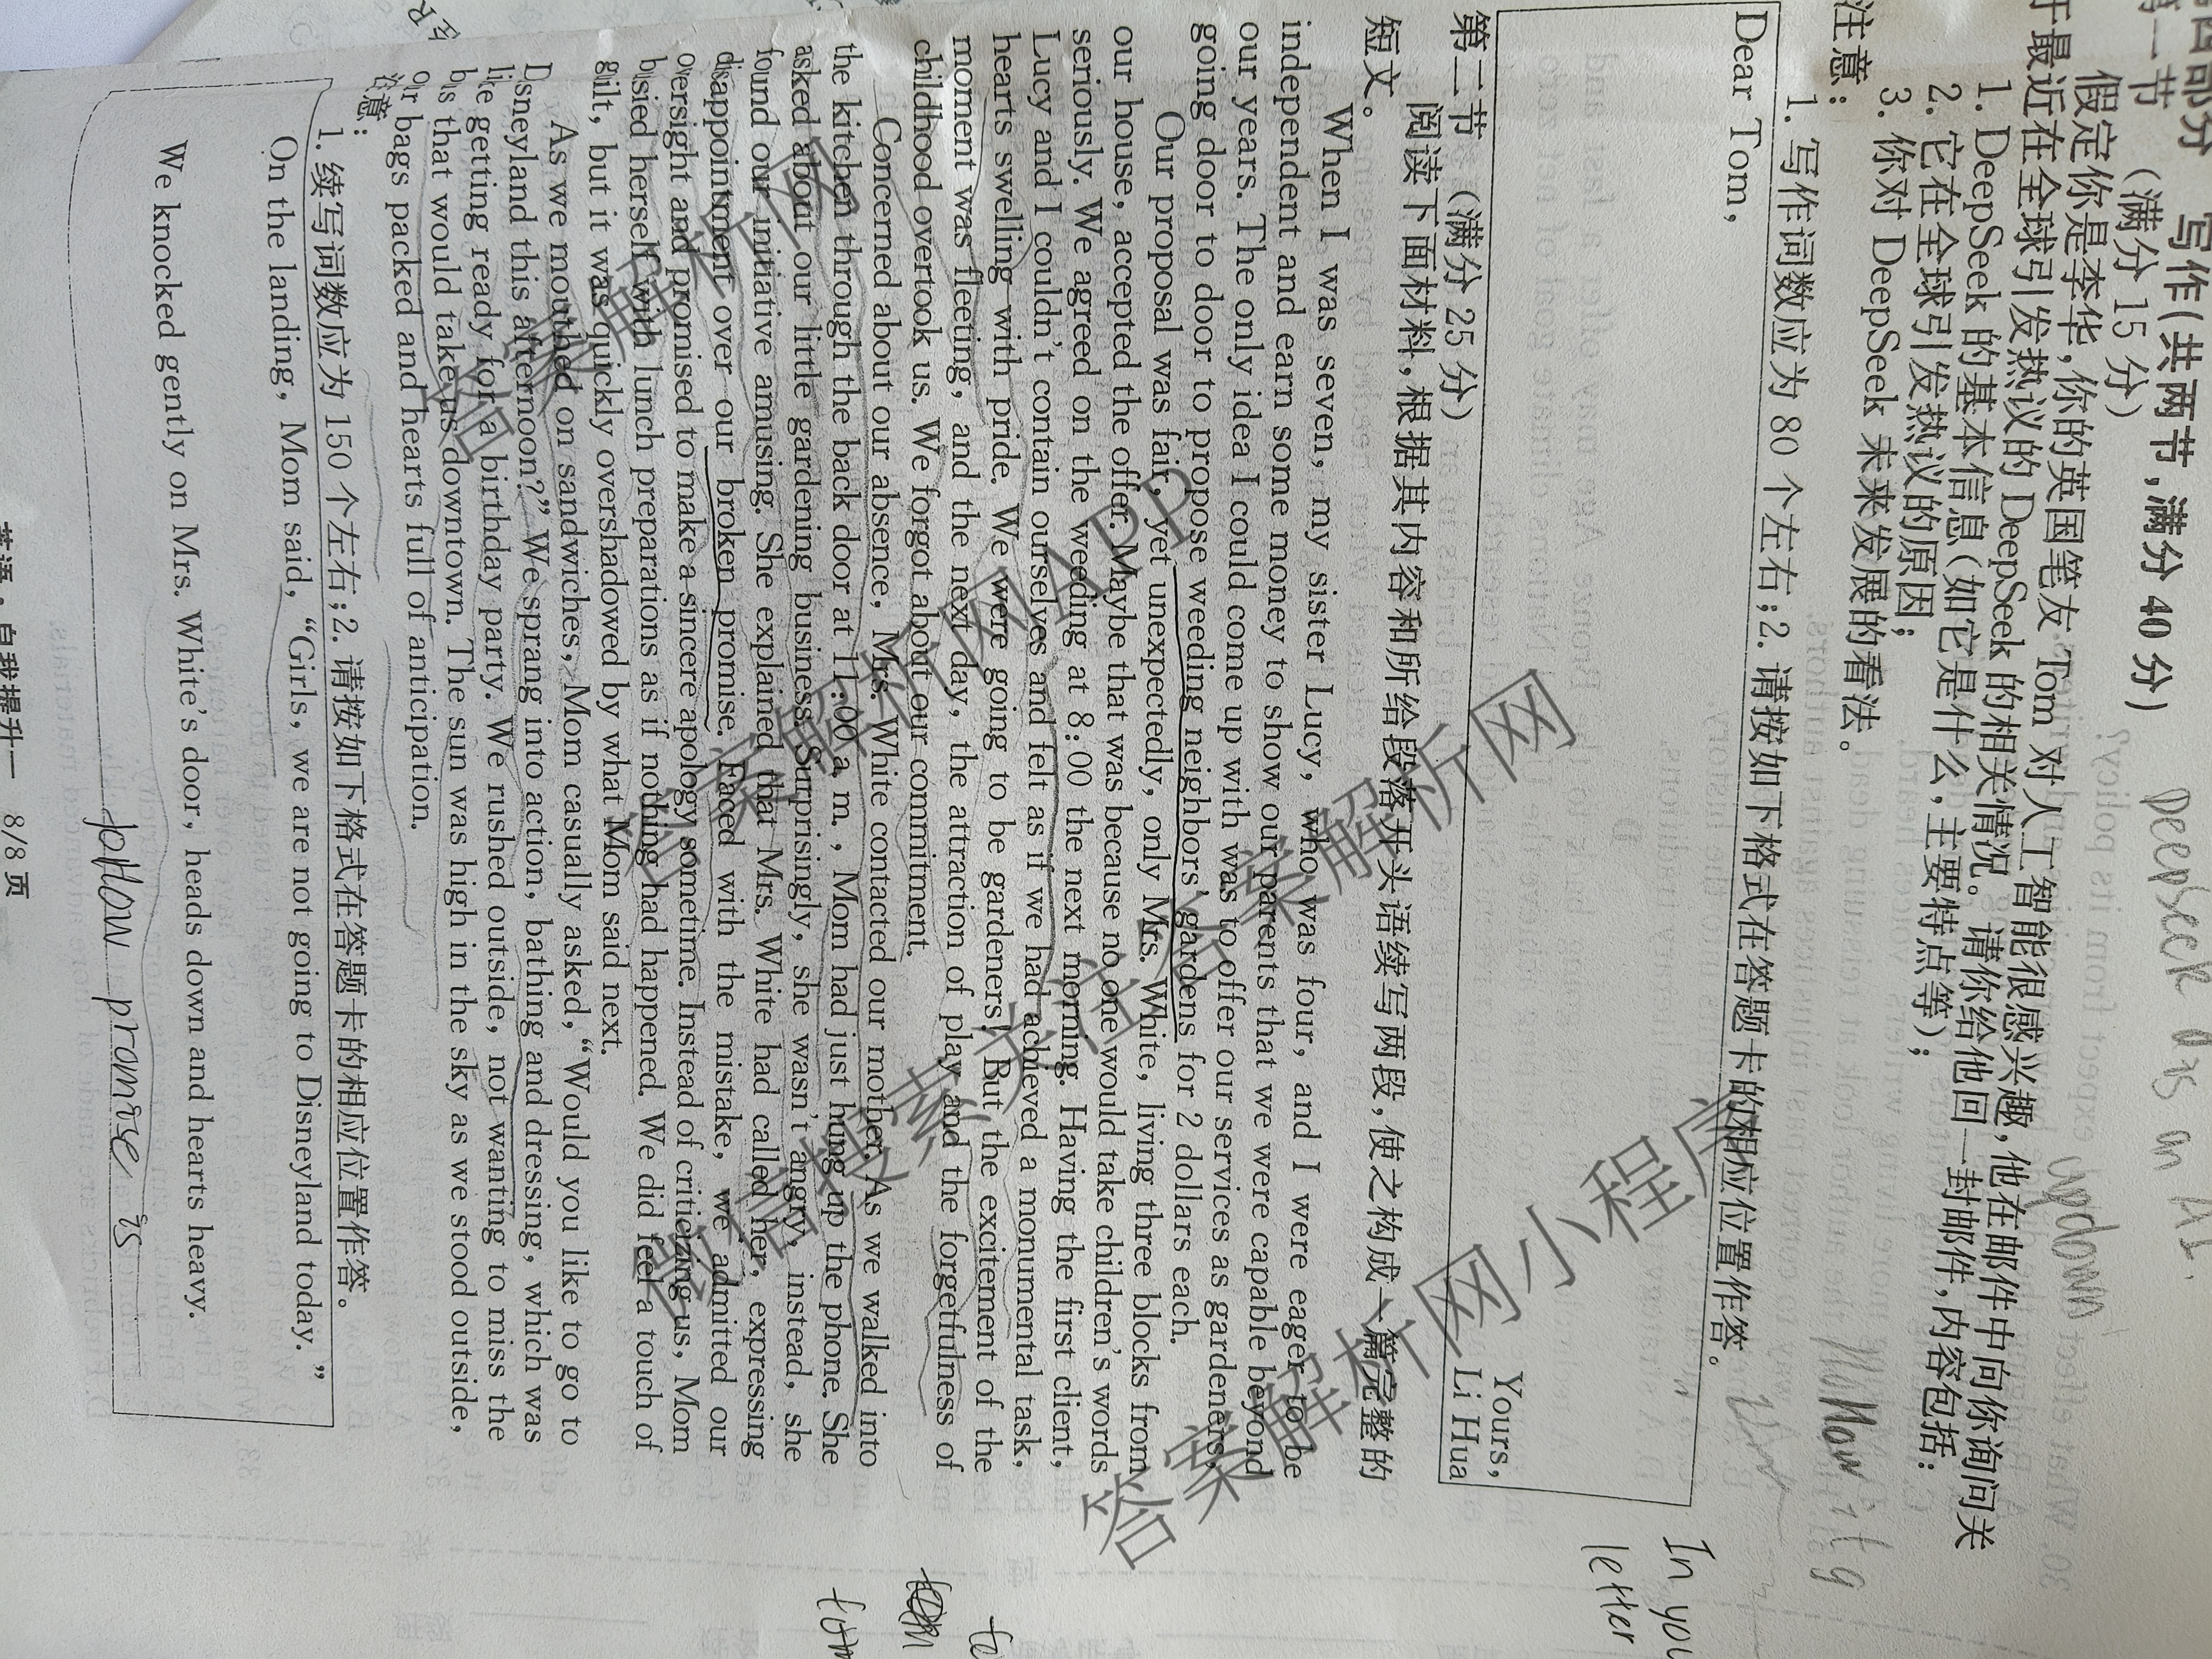 第四部分 写作(共两节,满分 40 分)
第一节 (满分 15 分)
假定你是李华,你的英国笔友 Tom 对人工智能很感兴趣,他在邮件中向你询问关
于最近在全球引发热议的 DeepSeek 的相关情况。请你给他回一封邮件,内容包括:
1. DeepSeek 的基本信息(如它是什么,主要特点等);
2. 它在全球引发热议的原因;
3. 你对 DeepSeek 未来发展的看法。
注意:
1. 写作词数应为 80 个左右;2. 请按如下格式在答题卡的相应位置作答。
Dear Tom,
Yours,
Li Hua
第二节 (满分 25 分)
阅读下面材料,根据其内容和所给段落开头语续写两段,使之构成一篇完整的
短文。
When I was seven, my sister Lucy, who was four, and I were eager to be
independent and earn some money to show our parents that we were capable beyond
our years. The only idea I could come up with was to offer our services as gardeners,
going door to door to propose weeding neighbors' gardens for 2 dollars each.
Our proposal was fair, yet unexpectedly, only Mrs. White, living three blocks from
our house, accepted the offer. Maybe that was because no one would take children's words
seriously. We agreed on the weeding at 8:00 the next morning. Having the first client,
Lucy and I couldn't contain ourselves and felt as if we had achieved a monumental task,
hearts swelling with pride. We were going to be gardeners! But the excitement of the
moment was fleeting, and the next day, the attraction of play and the forgetfulness of
childhood overtook us. We forgot about our commitment.
Concerned about our absence, Mrs. White contacted our mother. As we walked into
the kitchen through the back door at 11:00 a. m. , Mom had just hung up the phone. She
asked about our little gardening business. Surprisingly, she wasn't angry, instead, she
found our initiative amusing. She explained that Mrs. White had called her, expressing
disappointment over our broken promise. Faced with the mistake, we admitted our
oversight and promised to make a sincere apology sometime. Instead of criticizing us, Mom
busied herself with lunch preparations as if nothing had happened. We did feel a touch of
guilt, but it was quickly overshadowed by what Mom said next.
As we mouthed on sandwiches, Mom casually asked, “Would you like to go to
Disneyland this afternoon?” We sprang into action, bathing and dressing, which was
like getting ready for a birthday party. We rushed outside, not wanting to miss the
bus that would take us downtown. The sun was high in the sky as we stood outside,
our bags packed and hearts full of anticipation.
注意:
1. 续写词数应为 150 个左右;2. 请按如下格式在答题卡的相应位置作答。
On the landing, Mom said, “Girls, we are not going to Disneyland today. ”
We knocked gently on Mrs. White's door, heads down and hearts heavy.
follow promise is
英语·自我提升一 8/8 页
DeepSeek as an AI.
updown
In you
letter
答案解析网
答案解析网APP
微信搜索关注答案解析网
答案解析网小程序